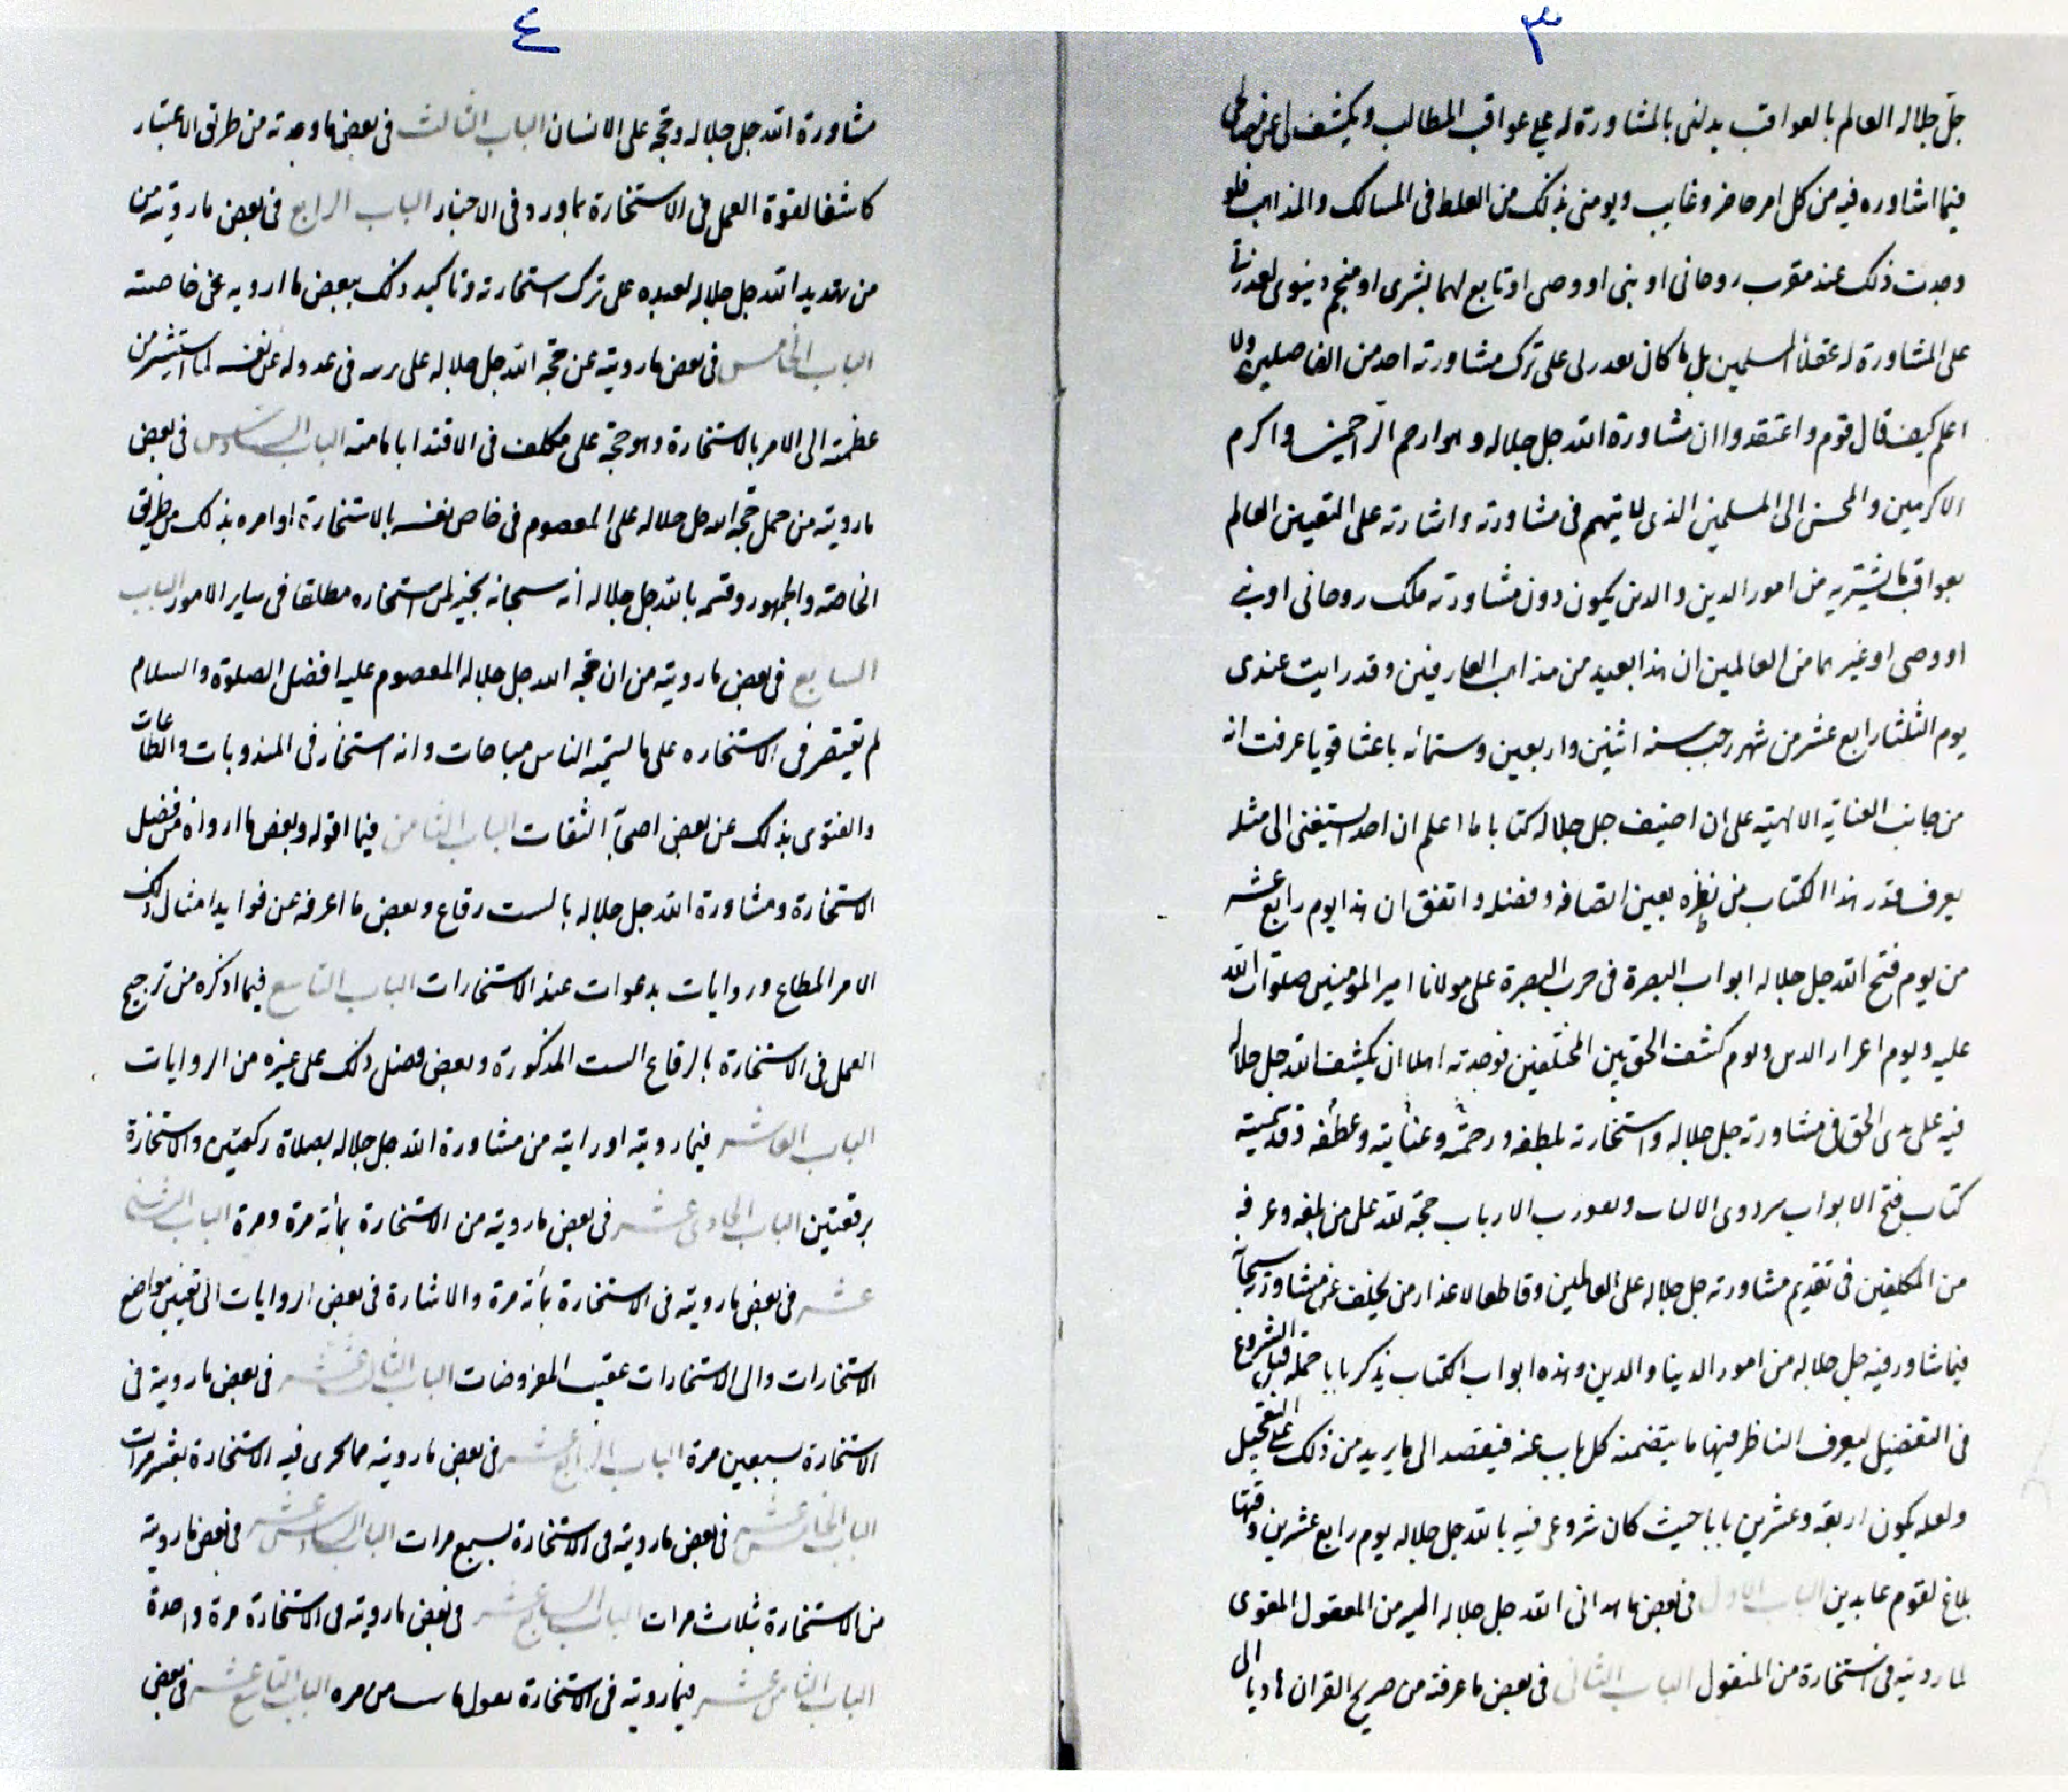 ٣
جل جلاله العالم بالعواقب يدلنى بالمشاورة له على عواقب المطالب ويكشف لى عن مصالحى
فيما اشاوره فيه من كل امر حاضر وغايب ويومنى بذلك من الغلط فى المسالك والمذاهب فلو
وجدت ذلك عند مقرب روحانى او نبى او وصى او تابع لهما بشرى او منجم دنيوى لعذرنى
على المشاورة له عقلاء المسلمين بل ما كان يعذرلى على ترك مشاورته احد من الفاضلين ولا
اعلم كيف قال قوم واعتقدوا ان مشاورة الله جل جلاله وهو ارحم الراحمين واكرم
الاكرمين والمحسن الى المسلمين الذى لا يتهم فى مشاورته واشارته على اليقين العالم
بعواقب ما يشير به من امور الدين والدين يكون دون مشاورته ملك روحانى او نبى
او وصى او غيرهما من العالمين ان هذا بعيد من مذاهب العارفين وقد رايت عندى
يوم الثلثا رابع عشر من شهر رجب سنه اثنين واربعين وستمائه باعثا قويا عرفت انه
من جانب العناية الالهية على ان اصنف جل جلاله كتابا ما اعلم ان احدا يستغنى الى مثله
يعرف قدر هذا الكتاب من نظره بعين انصافه وفضله واتفق ان هذا يوم رابع عشر
من يوم فتح الله جل جلاله ابواب البصرة فى حرب البصرة على مولانا امير المؤمنين صلوات الله
عليه ويوم اعزاز الدين ويوم كشف الحق بين المختلفين فوجدته اهلا ان يكشف الله جل جلاله
فيه على يدى الحق فى مشاورته جل جلاله واستخارته بلطفه ورحمته وعنايته وعطفه وقد سميته
كتاب فتح الابواب بين ذوى الالباب وبين رب الارباب حجة لله على من بلغه وعرفه
من المكلفين فى تقديم مشاورته جل جلاله على العالمين وقاطعا لاعذار من يتخلف عن مشاورته سبحانه
فيما شاور فيه جل جلاله من امور الدنيا والدين وهذه ابواب الكتاب يذكر بابا جمله قبل الشروع
فى التفضيل ليعرف الناظر فيها ما يتضمنه كل باب عنه فيقصد الى ما يريد من ذلك على التعجيل
ولعله يكون اربعة وعشرين بابا حيث كان شروعى فيه بالله جل جلاله يوم رابع عشرين وفيها
بلاغ لقوم عابدين الباب الاول فى بعض ما هدانى الله جل جلاله اليه من المعقول المقوى
لما رويته فى استخارة من المنقول الباب الثانى فى بعض ما عرفته من صريح القران هاديا الى
٤
مشاورة الله جل جلاله وحجة على الانسان الباب الثالث فى بعض ما وجدته من طريق الاعتبار
كاشفا لقوة العمل فى الاستخارة بما ورد فى الاخبار الباب الرابع فى بعض ما رويته من
من تهديد الله جل جلاله لعبده على ترك استخارته وتاكيد ذلك ببعض ما ارويه عن خاصته
الباب الخامس فى بعض ما رويته عن حجة الله جل جلاله على بريته فى عدوله عن نفسه لما استشير من
عظمته الى الامر بالاستخارة وهو حجة على مكلف فى الاقتدا بامامته الباب السادس فى بعض
ما رويته من عمل حجة الله جل جلاله على المعصوم فى خاص نفسه بالاستخارة او امره بذلك من طريق
الخاصة والجمهور وقسمه بالله جل جلاله انه سبحانه يخير لمن استخاره مطلقا فى ساير الامور الباب
السابع فى بعض ما رويته من ان حجة الله جل جلاله المعصوم عليه افضل الصلوة والسلام
لم يقتصر فى الاستخاره على ما يسميه الناس مباحات وانه استخار فى المندوبات والطاعات
والفتوى بذلك عن بعض اصحابنا الثقات الباب الثامن فيما اقوله وبعض ما ارواه من فضل
الاستخارة ومشاورة الله جل جلاله بالست رقاع وبعض ما اعرفه من فوايد امثال ذلك
الامر المطاع وروايات بدعوات عند الاستخارات الباب التاسع فيما اذكره من ترجيح
العمل فى الاستخارة بالرقاع الست المذكورة وبعض فضل ذلك على غيره من الروايات
الباب العاشر فيما رويته او رايته من مشاورة الله جل جلاله بصلاة ركعتين والاستخارة
برقعتين الباب الحادى عشر فى بعض ما رويته من الاستخارة بمائة مرة ومرة الباب الثانى
عشر فى بعض ما رويته فى الاستخارة بمائة مرة والاشارة فى بعض الروايات الى تعيين مواضع
الاستخارات والى الاستخارات عقيب المفروضات الباب الثالث عشر فى بعض ما رويته فى
الاستخارة بسبعين مرة الباب الرابع عشر فى بعض ما رويته مما يجرى فيه الاستخارة بعشر مرات
الباب الخامس عشر فى بعض ما رويته فى الاستخارة بسبع مرات الباب السادس عشر فى بعض ما رويته
من الاستخارة بثلاث مرات الباب السابع عشر فى بعض ما رويته فى الاستخارة مرة واحدة
الباب الثامن عشر فيما رويته فى الاستخارة بقول ما من مره الباب التاسع عشر فى بعض